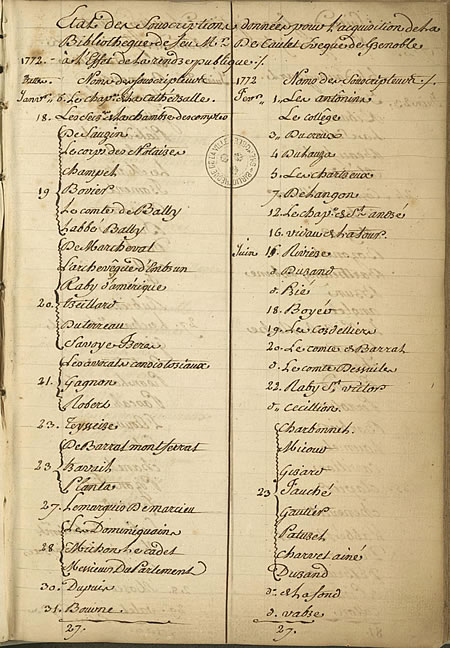 Etat des Souscriptions données pour l'acquisition de la
Bibliotheque de feu Mr. De Caulet Eveque de Grenoble
à l'Effet de la rendre publique /.
1772.
Noms des souscripteurs
Janvr. 6. Le chap. de la cathédralle.
18. Les Srs. de la chambre des comptes
De Sauzin
Le corps des Notaires
Champel
19 Bovier
Le comte de Bally
L'abbé Bally
De Marcheval
L'archevêque d'Embrun
Raby d'amérique
20. Teillard
Duterreau
Savoye
Les avocats consistoriaux
21. Gagnon
Robert
23. Teysseire
De Barral montferrat
23 Barral
Planta
27. Le marquis De marcieu
Les Dominiquains
28 Michon Le cadet
Messieurs Du Parlement
30. Dupuis
31. Bovine.
27.
1772 Noms des souscripteurs /.
1. Les antonins
Le collège
3. Ducreux
4 Duhauza
5. Les chartreux
7. De Langon
12. Le chap. de St. andré
16. vivau de la tour.
Juin 16. Rivière
d. Durand
d. Bié
18. Boyer
19. Les cordeliers
20. Le comte de Barral
d. Le comte
22. Raby St. victor
d.
Charbonnel.
Micoud
Gerard
23 Fauché
Gautier
Patural
Charvet ainé
Durand
d. de Lafond
d. valse
27.